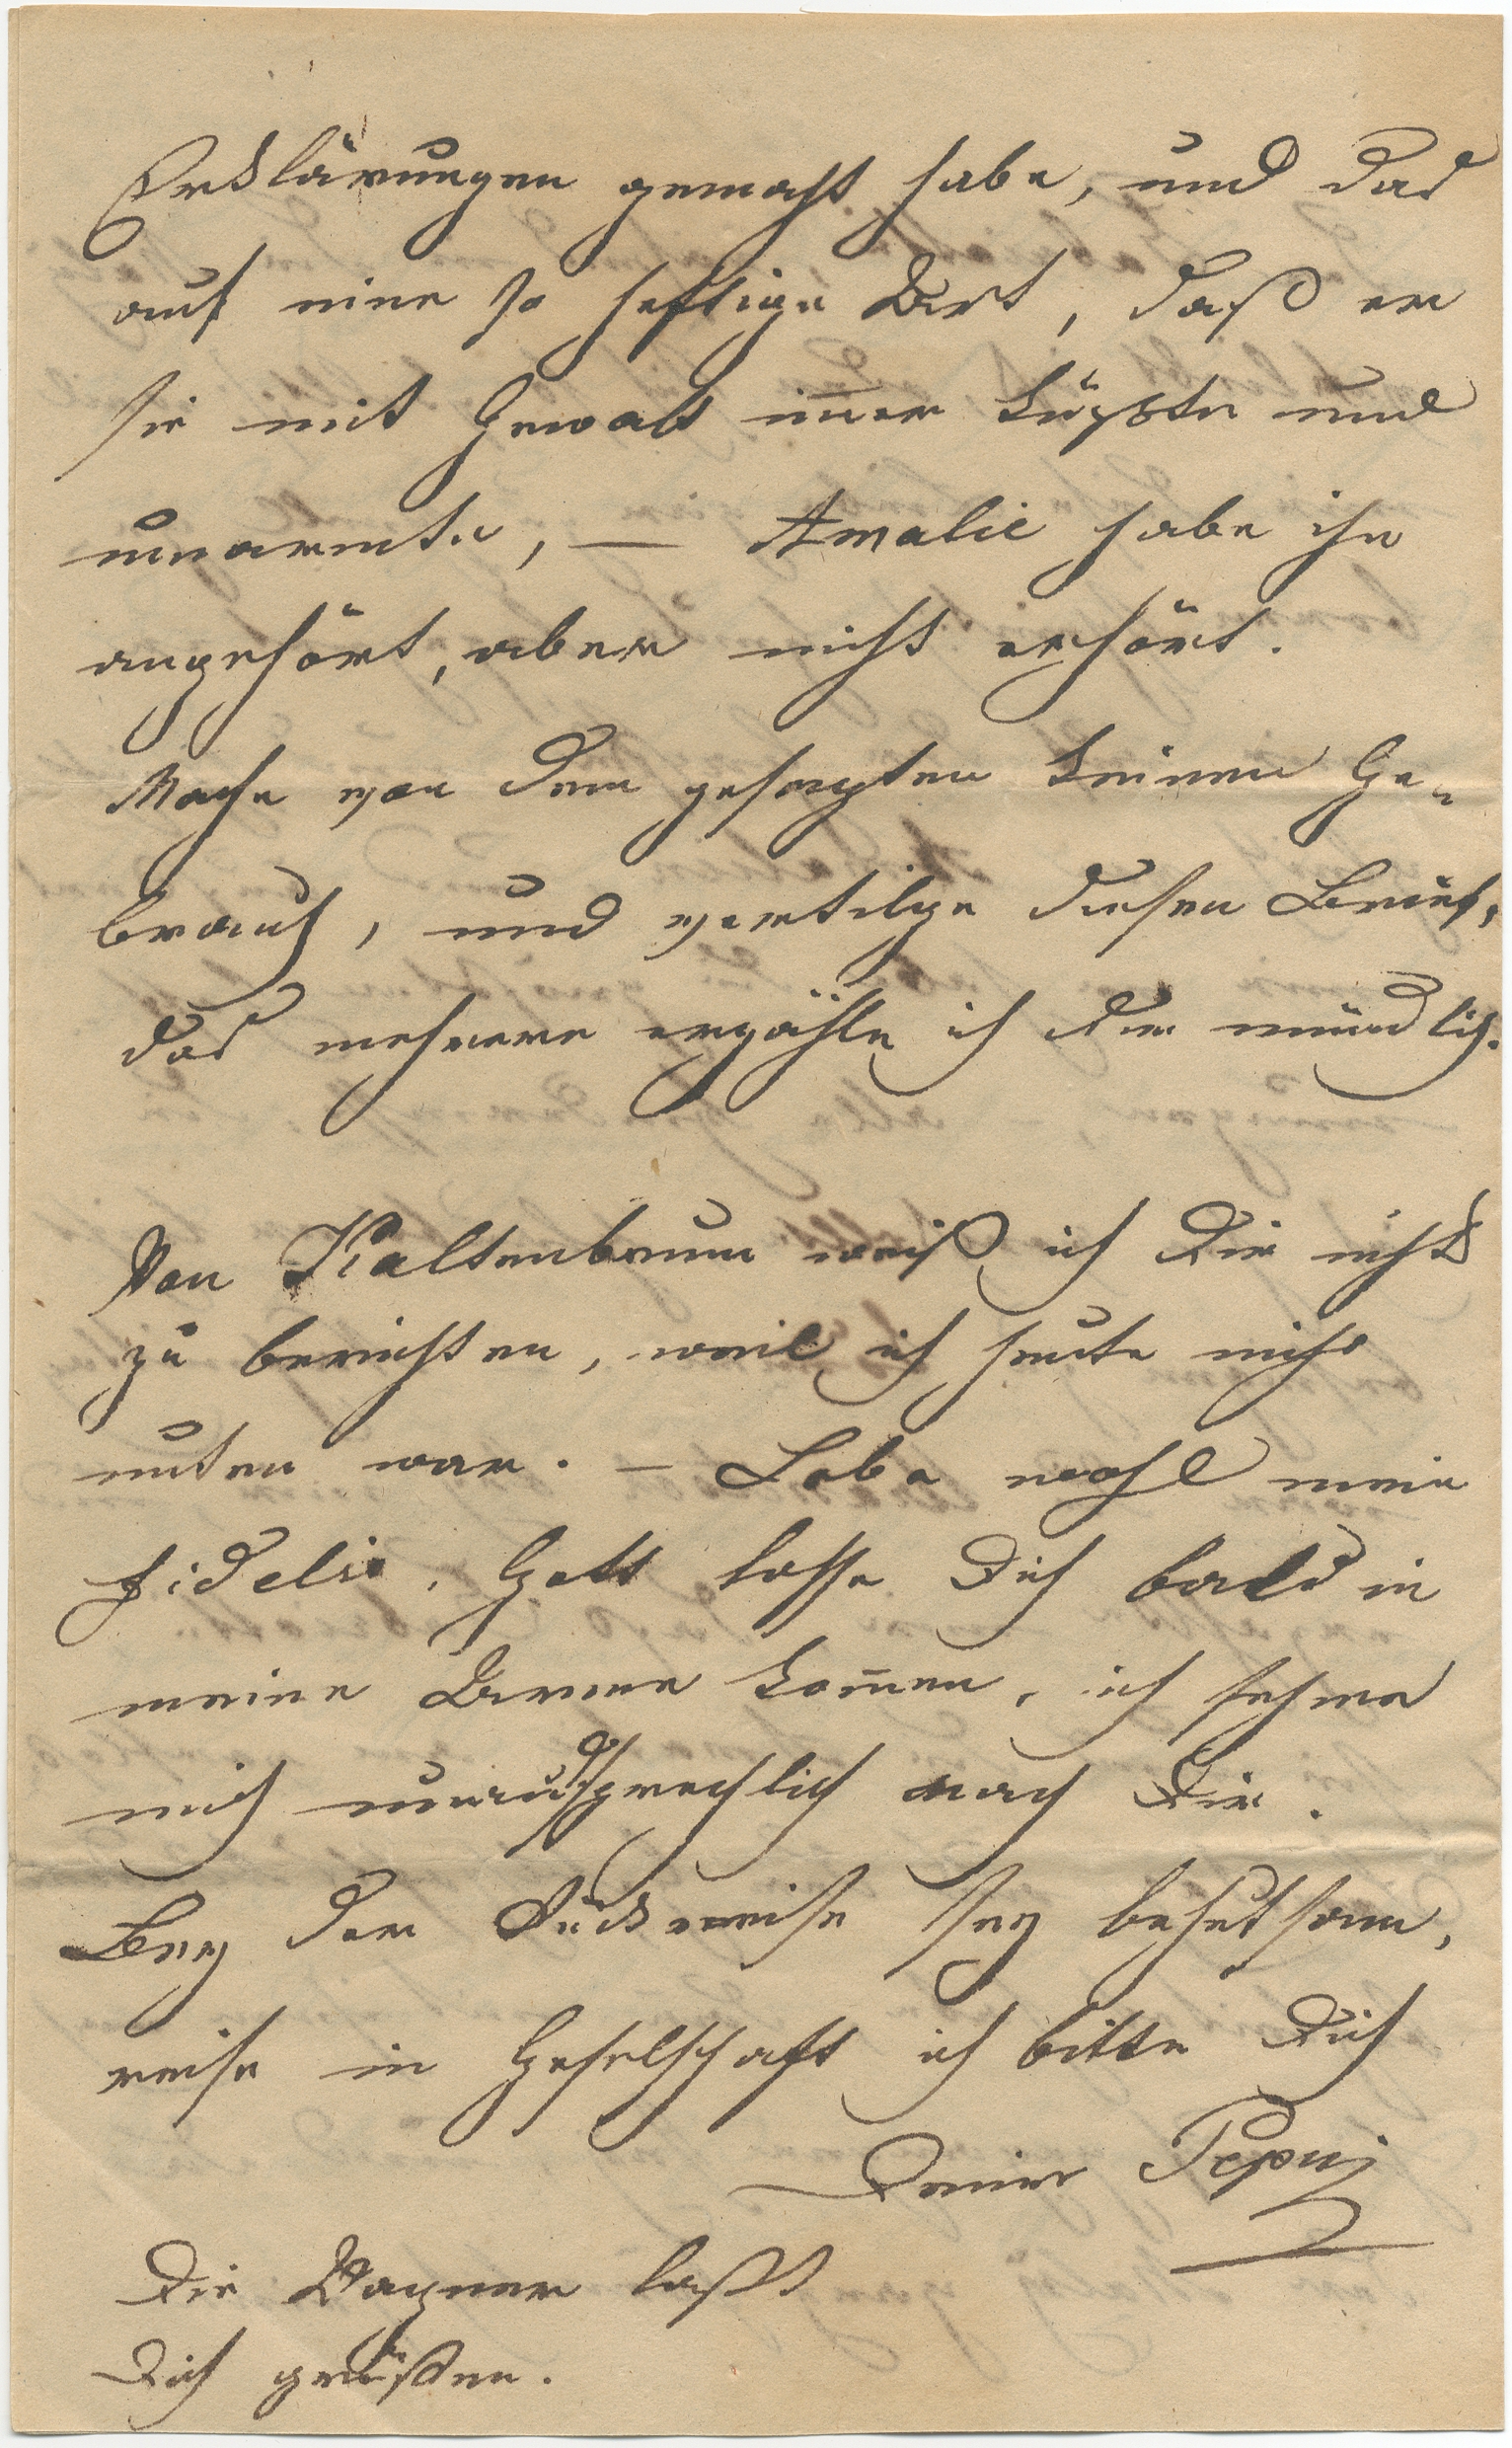 Erklärungen gemacht habe, und das
auf eine so heftige Art, daß er
sie mit Gewalt im̄er küßte und
umarmte, — Amalie habe ihn
angehört, aber nicht erhört.
Mache von dem gesagten keinen Ge„
brauch, und vertilge diesen Brief,
das mehrere erzähle ich Dir mündlich.
Von Kaltenbrunn weiß ich Dir nichts
zu berichten, weil ich heute nicht
unten war. — Lebe wohl mein
fidelio, Gott lasse Dich bald in
meine Arme kom̄en, ich sehne
mich unaussprechlich nach Dir.
Bey der Rückreise sey behutsam,
reise in Geselschaft ich bitte Dich
Deine Pepi
Die Wagner laßt
Dich grüßen.